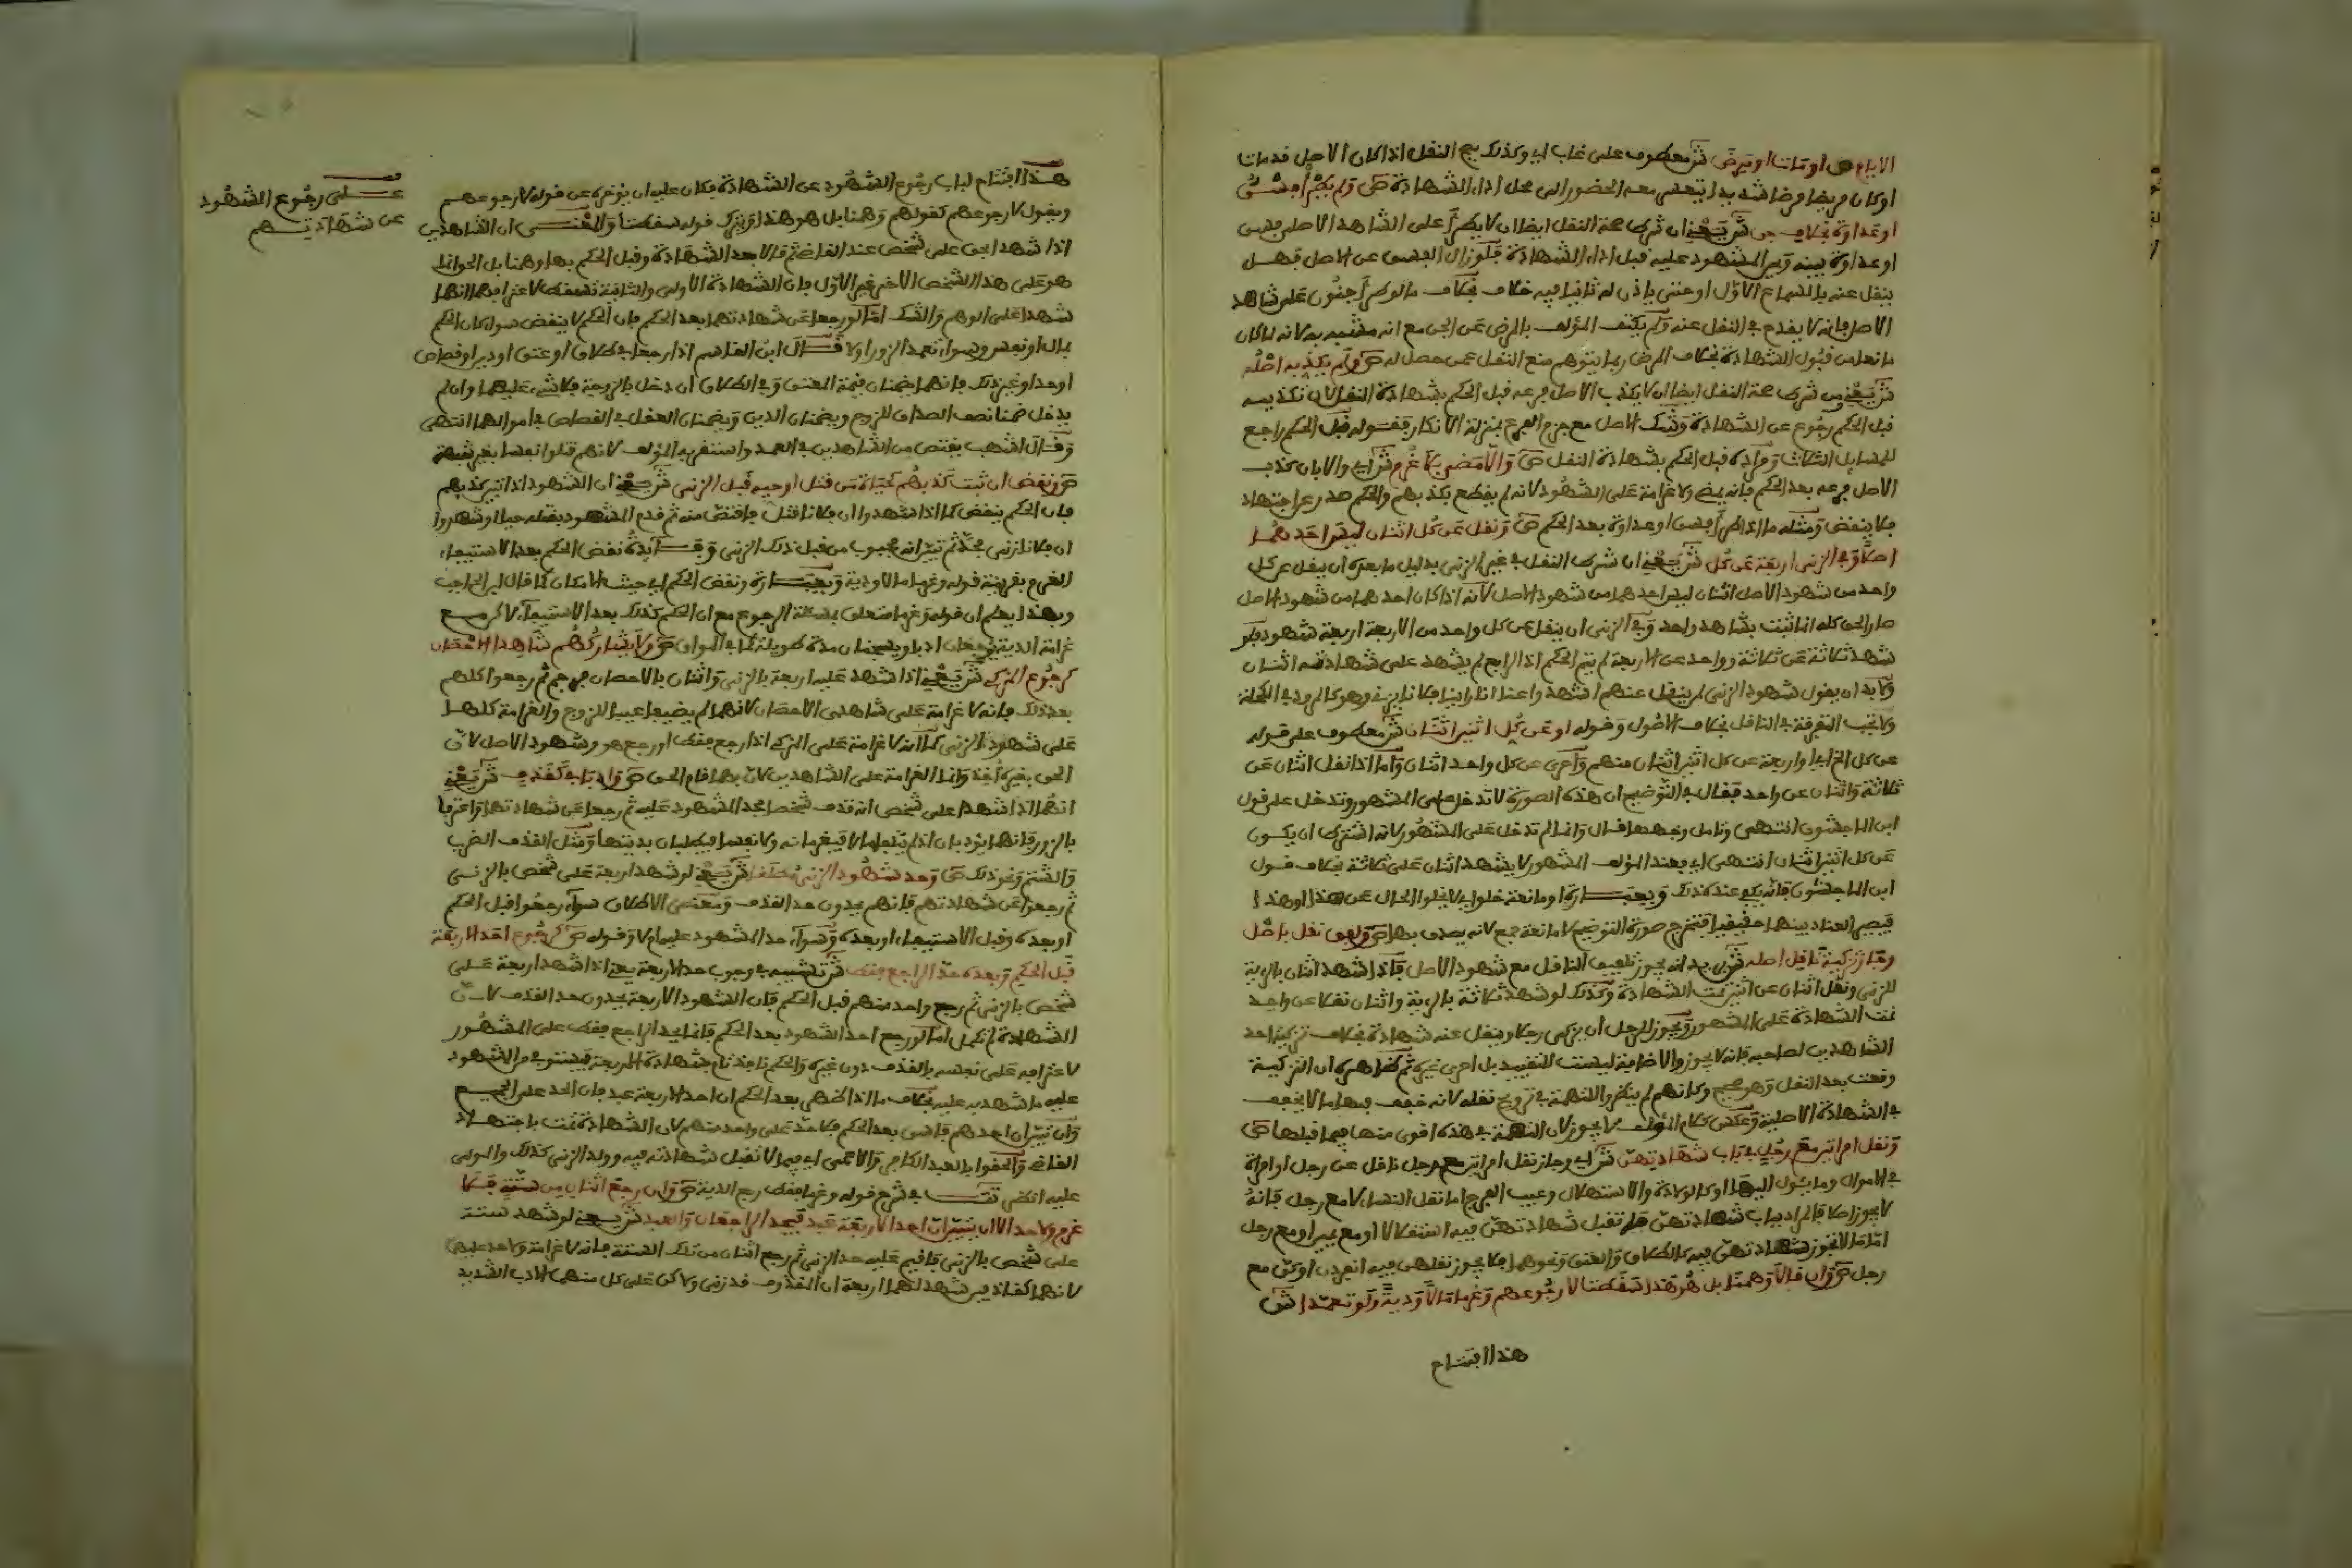 الايام ص او مات او مرض ش معطوف على غاب اي وكذلك يصح النقل اذا كان الاصل قد مات
او كان مريضا مرضا شديدا يتعسر معه الحضور الى محل اداء الشهادة ص ولم يطرا فسق
او عداوة بخلاف جن ش يعني ان شرط صحة النقل ايضا ان لا يطرا على الشاهد الاصلي فسق
او عداوة بينه وبين المشهود عليه قبل اداء الشهادة فلو زال الفسق عن الاصل فهل
ينقل عنه بالسماع الاول او حتى ياذن له ثانيا فيه خلاف بخلاف ما لو طرا جنون على شاهد
الاصل فانه لا يقدح في النقل عنه ولم يكتف المؤلف بالمرض عن الجن مع انه مشبه به لانه لما كان
مانعا من قبول الشهادة بخلاف المرض ربما يتوهم منع النقل عمن حصل له ص ولم يكذبه اصله
ش يعني من شرط صحة النقل ايضا ان لا يكذب الاصل فرعه قبل الحكم بشهادة النقل لان تكذيبه
قبل الحكم رجوع عن الشهادة وشك الاصل مع جزم الفرع بمنزلة الانكار فقوله قبل الحكم راجع
للمسايل الثلاث ومراده قبل الحكم بشهادة النقل ص والا مضى بلا غرم ش اي والا بان كذب
الاصل فرعه بعد الحكم فانه يمضي ولا غرامة على الشهود لانه لم يقطع بكذبهم والحكم صدر عن اجتهاد
فلا ينقض ومثله ما اذا طرا فسق او عداوة بعد الحكم ص ونقل عن كل اثنان ليس احدهما
اصلا وفي الزنى اربعة عن كل ش يعني ان شرط النقل في غير الزنى بدليل ما بعده ان ينقل عن كل
واحد من شهود الاصل اثنان ليس احدهما من شهود الاصل لانه اذا كان احدهما من شهود الاصل
صار الحق كله انما ثبت بشاهد واحد وفي الزنى ان ينقل عن كل واحد من الاربعة اربعة شهود فلو
شهد ثلاثة عن ثلاثة وواحد عن الاربعة لم يتم الحكم اذا الرابع لم يشهد على شهادته اثنان
ولا بد ان يقول شهود الزنى لم ينقل عنهم اشهد واعنا انا راينا فلانا يزني وهو كالمرود في المكحلة
ولا تجب التفرقة في الناقل بخلاف الاصول وقوله او عن كل اثنين اثنان ش معطوف على قوله
عن كل الخ اي او اربعة عن كل اثنين اثنان منهم واخرى عن كل واحد اثنان واما اذا نقل اثنان عن
ثلاثة واثنان عن واحد فقال في التوضيح ان هذه الصورة لا تدخل على المشهور وتدخل على قول
ابن الماجشون انتهى وتامل وجهها قال وانما لم تدخل على المشهور لانه اشترط ان يكون
عن كل اثنين اثنان انتهى اي بعند المؤلف المشهور لا يشهد اثنان على ثلاثة بخلاف قول
ابن الماجشون فانه يكفي عنده ذلك وبعبارة او مانعة خلو اي لا يخلو الحال عن هذا او هذا
فيصير العناد بينهما حقيقيا فتخرج صورة التوضيح لا مانعة جمع لانه يصدق بها ص ولفق نقل باصل
وجاز تزكية ناقل اصله ش يريد انه يجوز تلفيق الناقل مع شهود الاصل فاذا شهد اثنان بالرؤية
للزنى ونقل اثنان عن اثنين تمت الشهادة وكذلك لو شهد ثلاثة بالرؤية واثنان نقلا عن واحد
تمت الشهادة على المشهور ويجوز للرجل ان يزكي رجلا وينقل عنه شهادة بخلاف تزكية احد
الشاهدين لصاحبه فانه لا يجوز والاضافة ليست للتقييد بل احرى غيره ثم ظاهره ان التزكية
وقعت بعد النقل وهو صحيح وكانهم لم ينظروا للتهمة في ترويج نقله لانه خفف فيها ما لا يخفف
في الشهادة الاصلية وعكس كلام المؤلف لا يجوز لان التهمة في هذه اقوى منها فيما قبلها ص
ونقل امراتين مع رجل في باب شهادتهن ش اي وجاز نقل امراتين مع رجل ناقل عن رجل او امراة
في الاموال وما يئول اليها او كالولادة والاستهلال وعيب الفرج اما نقل النساء لا مع رجل فانه
لا يجوز اصلا قالم ادباب شهادتهن هل تقبل شهادتهن فيه استقلالا او مع يمين او مع رجل
اما ما لا تجوز شهادتهن فيه كالطلاق والعتق ونحوهما فلا يجوز نقلهن فيه انفردن او كن مع
رجل ص وان قالا وهمنا بل هو هذا سقطتا لا رجوعهم وغرما مالا ودية ولو تعمدا ش
هذا افتتاح
هذا افتتاح لباب رجوع الشهود عن الشهادة فكان عليه ان يؤخره عن قوله لا رجوعهم
ويقول لا رجوعهم كقولهم وهمنا بل هو هذا او يترك قوله سقطتا والمعنى ان الشاهدين
اذا شهدا بحق على شخص عند القاضي ثم قالا بعد الشهادة وقبل الحكم بها وهمنا بل الحق انما
هو على هذا الشخص الاخر غير الاول فان الشهادة الاولى والثانية تسقط لاعترافهما انهما
شهدا على الوهم والشك اما لو رجعا عن شهادتهما بعد الحكم فان الحكم لا ينقض سواء كان الحكم
بمال او نفس وسواء تعمدا الزور او لا قال ابن القاسم اذا رجعا في طلاق او عتق او دين او قصاص
او حد او غير ذلك فانهما يضمنان قيمة المعتق وفي الطلاق ان دخل بالزوجة فلا شيء عليهما وان لم
يدخل ضمنا نصف الصداق للزوج ويضمنان الدين ويضمنان العقل في القصاص في اموالهما انتهى
وقال اشهب يقتص من الشاهدين في العمد واستقربه المؤلف لانهم قتلوا نفسا بغير شبهة
ص ونقض ان ثبت كذبهم كحياة من قتل او جبه قبل الزنى ش يعني ان الشهود اذا تبين كذبهم
فان الحكم ينقض كما اذا شهدوا ان فلانا قتل فلانا فاقتص منه ثم قدم المشهود بقتله حيا او شهدوا
ان فلانا زنى بحد ثم تبين انه مجبوب من قبل ذلك الزنى وفائدة نقض الحكم بعد الاستيفاء
الغرم بقرينة قوله وغرما مالا ودية وبعبارة ونقض الحكم اي حيث الامكان كما قال ابن الحاجب
وبهذا يعلم ان قوله وغرما متعلق بمسئلة الرجوع مع ان الحكم كذلك بعد الاستيفاء لا كرجوع
غرامة الدية يوجعان ادبا ويسجنان مدة طويلة كما في المواق ص ولا يشاركهم شاهدا الاحصان
كرجوع المزكي ش يعني اذا شهد عليه اربعة بالزنى واثنان بالاحصان فرجم ثم رجعوا كلهم
بعد ذلك فانه لا غرامة على شاهدي الاحصان لانهما لم يضيعا عيبا للزوج والغرامة كلها
على شهود الزنى كما انه لا غرامة على المزكي اذا رجع فقط او رجع هو وشهود الاصل لان
الحق بغيره اخذ وانما الغرامة على الشاهدين لان بهما قام الحق ص وادبا في كقذف ش يعني
انهما اذا شهدا على شخص انه قذف شخصا فحد المشهود عليه ثم رجعا عن شهادتهما واعترفا
بالزور فانهما يؤدبان اذ لم يتلفا مالا فيغرمانه ولا نفسا فيطلبان بديتها ومثل القذف الضرب
والشتم ونحو ذلك ص وحد شهود الزنى مطلقا ش يعني لو شهد اربعة على شخص بالزنى
ثم رجعوا عن شهادتهم فانهم يحدون حد القذف ومعنى الاطلاق سواء رجعوا قبل الحكم
او بعده وقبل الاستيفاء او بعده وسواء حد المشهود عليه ام لا وقوله ص كرجوع احد الاربعة
قبل الحكم وبعده حد الراجع فقط ش تشبيه في وجوب حد الاربعة يعني اذا شهد اربعة على
شخص بالزنى ثم رجع واحد منهم قبل الحكم فان الشهود الاربعة يحدون حد القذف لان
الشهادة لم تكمل اما لو رجع احد الشهود بعد الحكم فانما يحد الراجع فقط على المشهور
لاعترافه على نفسه بالقذف دون غيره والحكم نافذ تام بشهادة الاربعة فيستوفى من المشهود
عليه ما شهد به عليه بخلاف ما اذا ظهر بعد الحكم ان احد الاربعة عبد فان الحد على الجميع
وان تبين ان احدهم فاسق بعد الحكم فلا حد على واحد منهم لان الشهادة تمت باجتهاد
القاضي والحقوا بالعبد الكافر والاعمى اي فيما لا تقبل شهادته فيه وولد الزنى كذلك والمولى
عليه انظر تت في شرح قوله وغرما فقط ربع الدية ص وان رجع اثنان من ستة فلا
غرم ولا حد الا ان يتبين ان احد الاربعة عبد فيحد الراجعان والعبد ش يعني لو شهد ستة
على شخص بالزنى فاقيم عليه حد الزنى ثم رجع اثنان من تلك الستة فانه لا غرامة ولا حد عليهما
لانهما كقاذفين شهد لهما اربعة ان المقذوف قد زنى ولكن على كل منهما الادب الشديد
فصل
على رجوع الشهود
عن شهادتهم